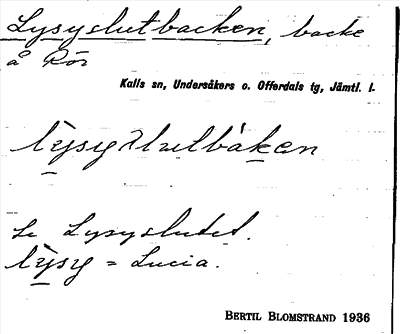 Lysyslutbacken, backe
å Rör
Kalls sn, Undersåkers o. Offerdals tg, Jämtl. l.
Se Lysyslutet.
lysy = Lucia.
BERTIL BLOMSTRAND 1936